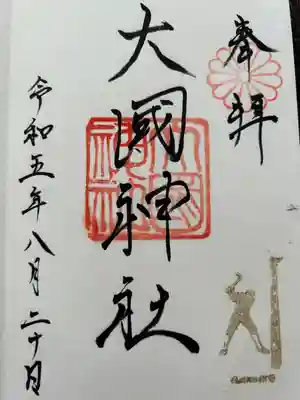 奉拝
大國神社
令和五年八月二十日